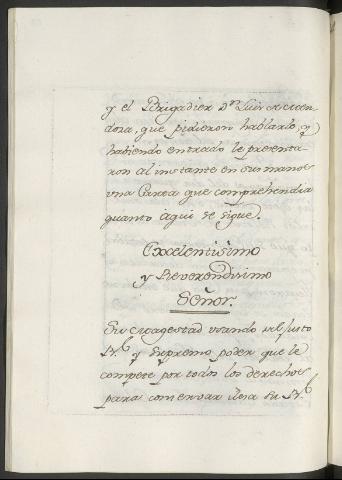 y el Brigadier Dn. Luis
dosa, que pidieron hablarle, y
habiendo entrado le presenta-
ron al instante en sus manos
una Carta que comprehendia
quanto aqui se sigue.
Excelentisimo
y Reverendisimo
Señor.
Su Magestad usando del justo
y Supremo poder que le
compete por todos los derechos
para conservar ilesa su